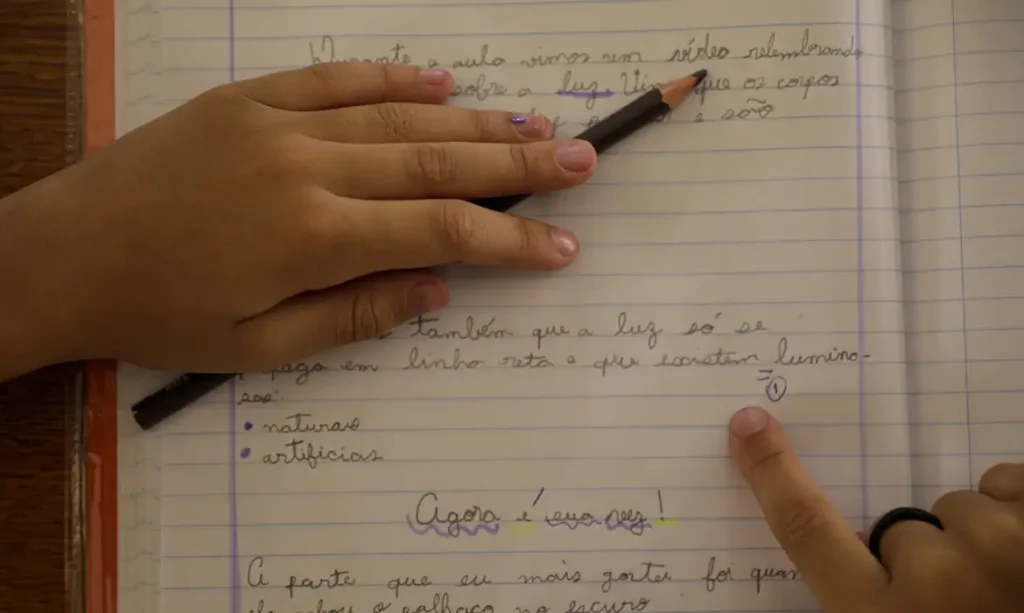 Durante a aula vimos um vídeo relembrando
sobre a luz. que os corpos
e são
também que a luz só se
em linha reta e que existem lumino-
sos:
=①
• naturais
• artificias
Agora é sua vez!
A parte que eu mais gostei foi quan
o palhaço no escuro